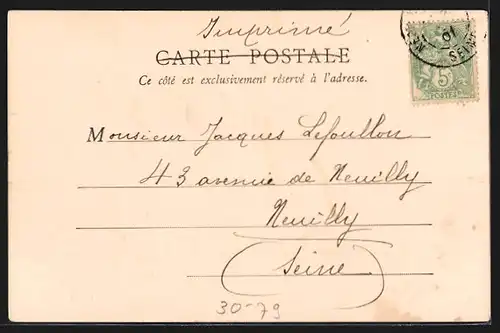 Imprimé
CARTE POSTALE
Ce côté est exclusivement réservé à l'adresse.
5
POSTES
01
SEINE
Monsieur Jacques Lefoullon
43 avenue de Neuilly
Neuilly
(Seine)
30-79